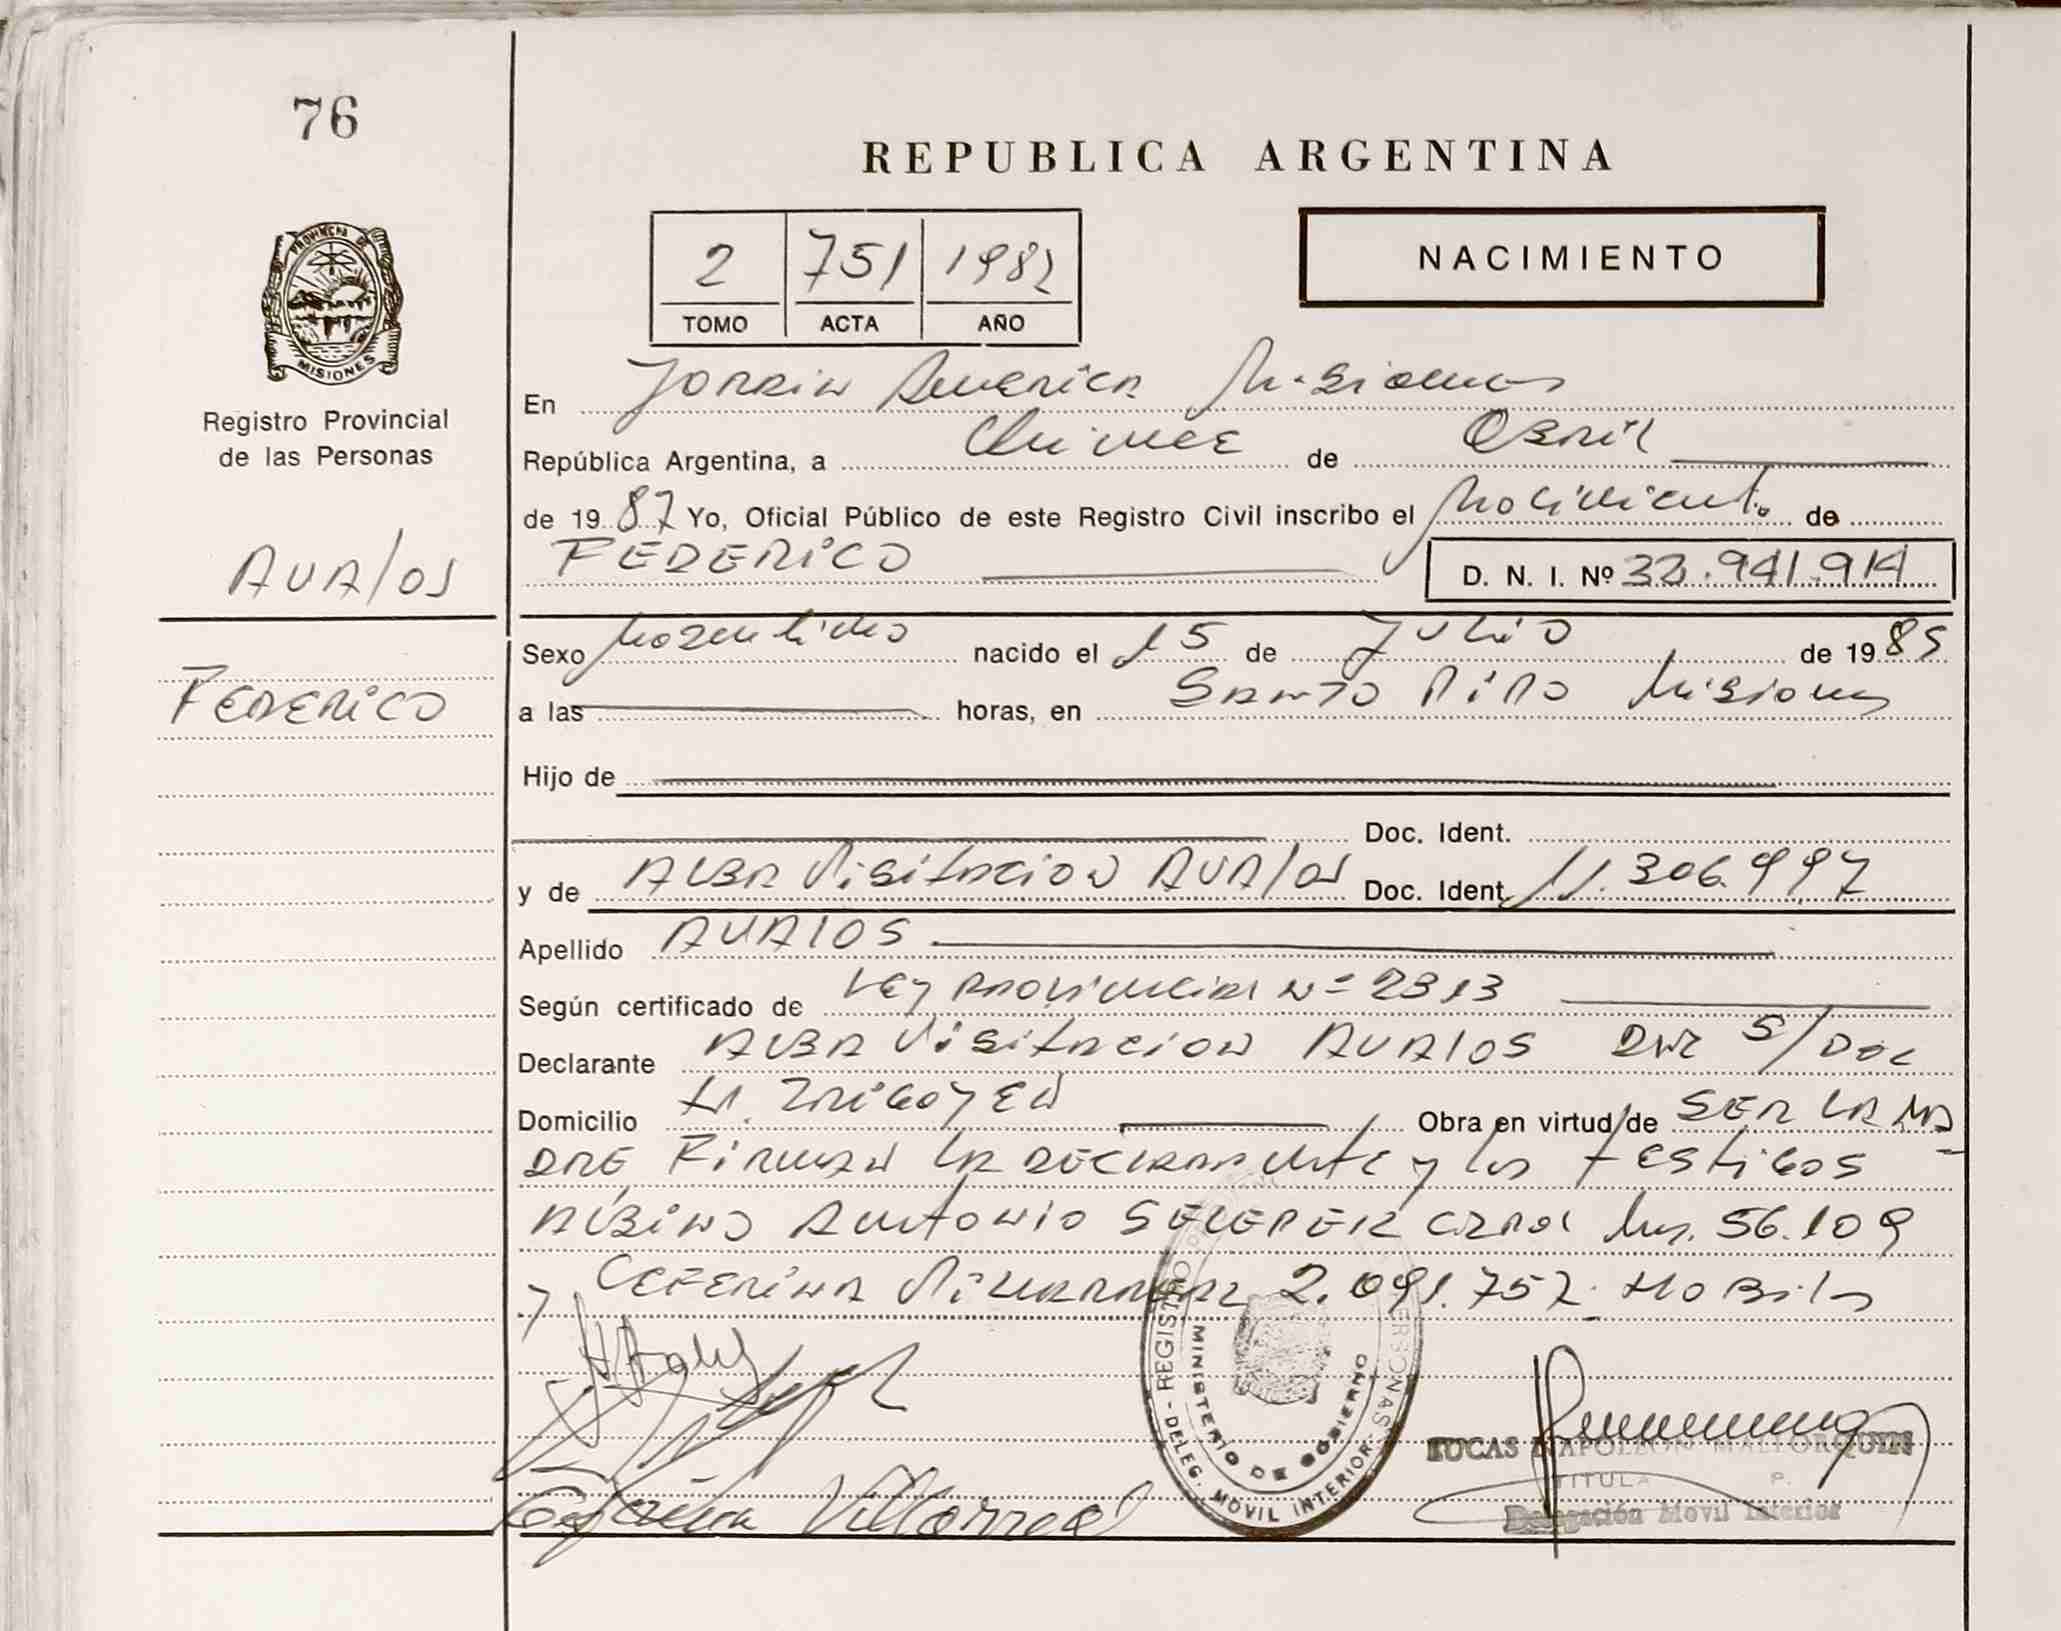 76
REPUBLICA ARGENTINA
PROVINCIA DE
MISIONES
2 751 1982
TOMO ACTA AÑO
NACIMIENTO
Registro Provincial
de las Personas
AVALOS
FEDERICO
En Jardin America Misiones
República Argentina, a Quince de Abril
de 1987 Yo, Oficial Público de este Registro Civil inscribo el Nacimiento de
FEDERICO D. N. I. Nº 32.941.914
Sexo Masculino nacido el 15 de Julio de 1985
a las horas, en Santo Pipo Misiones
Hijo de
Doc. Ident.
y de ALBA Visitacion AVALOS Doc. Ident. 11.306.997
Apellido AVALOS
Según certificado de Ley Provincial Nº 2313
Declarante ALBA Visitacion AVALOS DNI S/Doc
Domicilio H. IRIGOYEN Obra en virtud de SER LA MA
DRE, Firman LA DECLARANTE y los testigos
Albino Antonio 56.109
y CEFERINA Villarreal 2.091.757. Habils
Ceferina Villarreal
DELEG. MOVIL INTERIOR
MINISTERIO DE GOBIERNO
LUCAS NAPOLEON MALLORQUIN
TITULA P.
Delegación Movil Interior